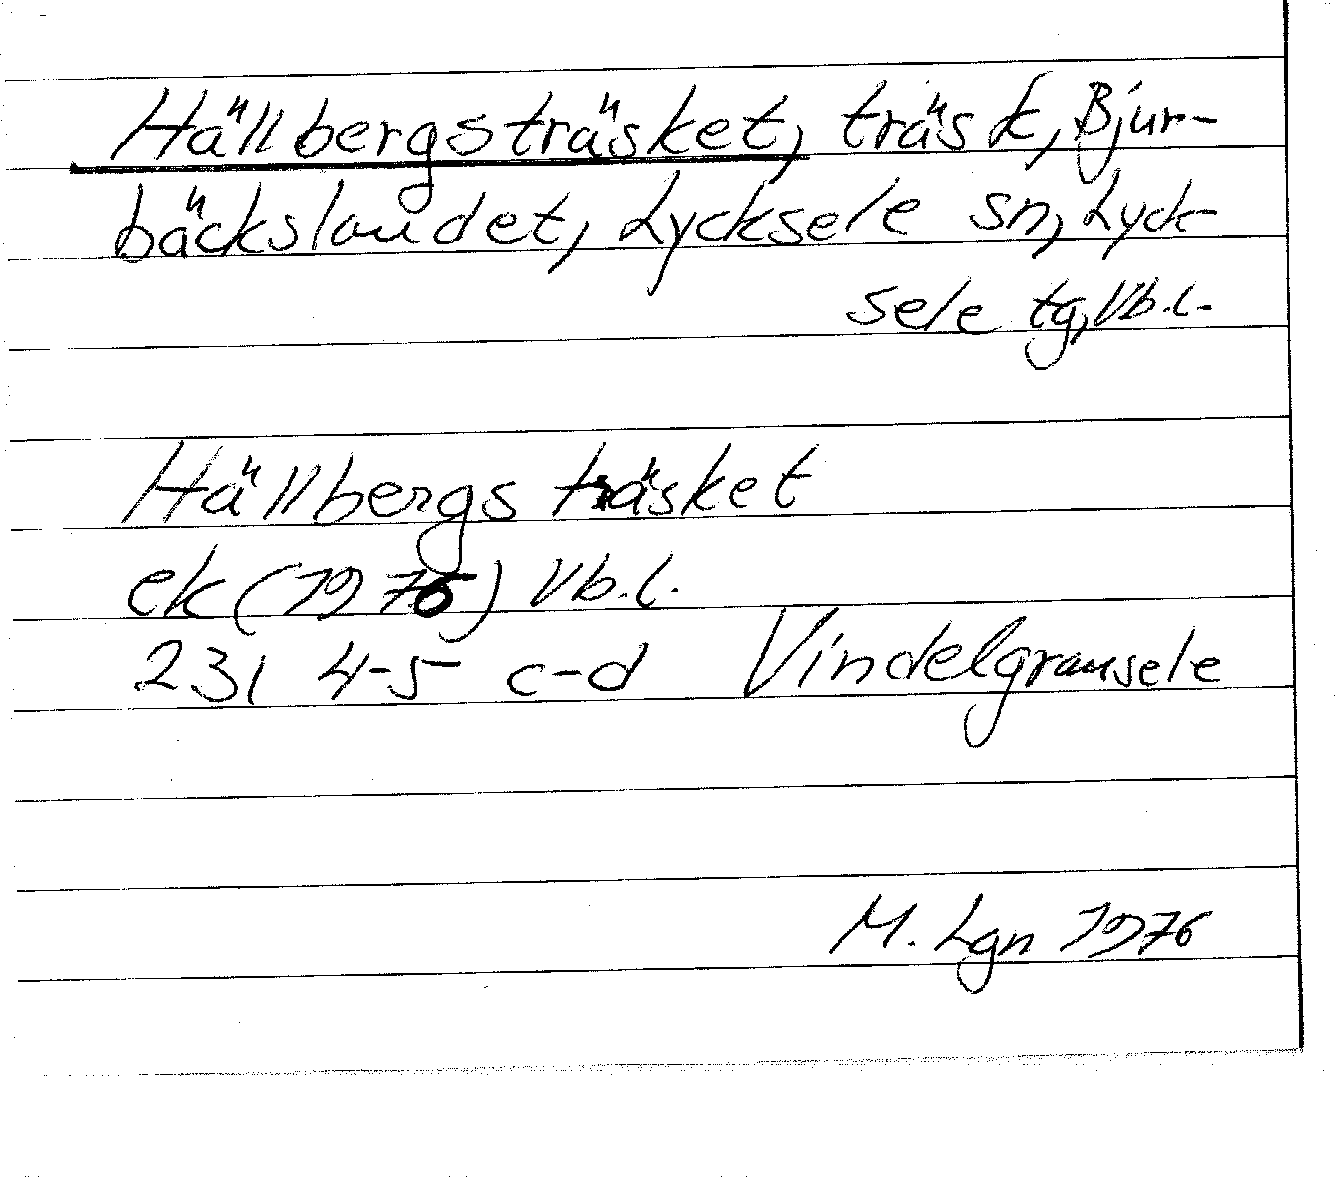 Hällbergsträsket, träsk, Bjur-
bäckslandet, Lycksele sn, Lyck-
sele tg, Vb.l.
Hällbergsträsket
ek (1976) Vb.l.
23I 4-5 c-d Vindelgransele
M. Lgn 1976